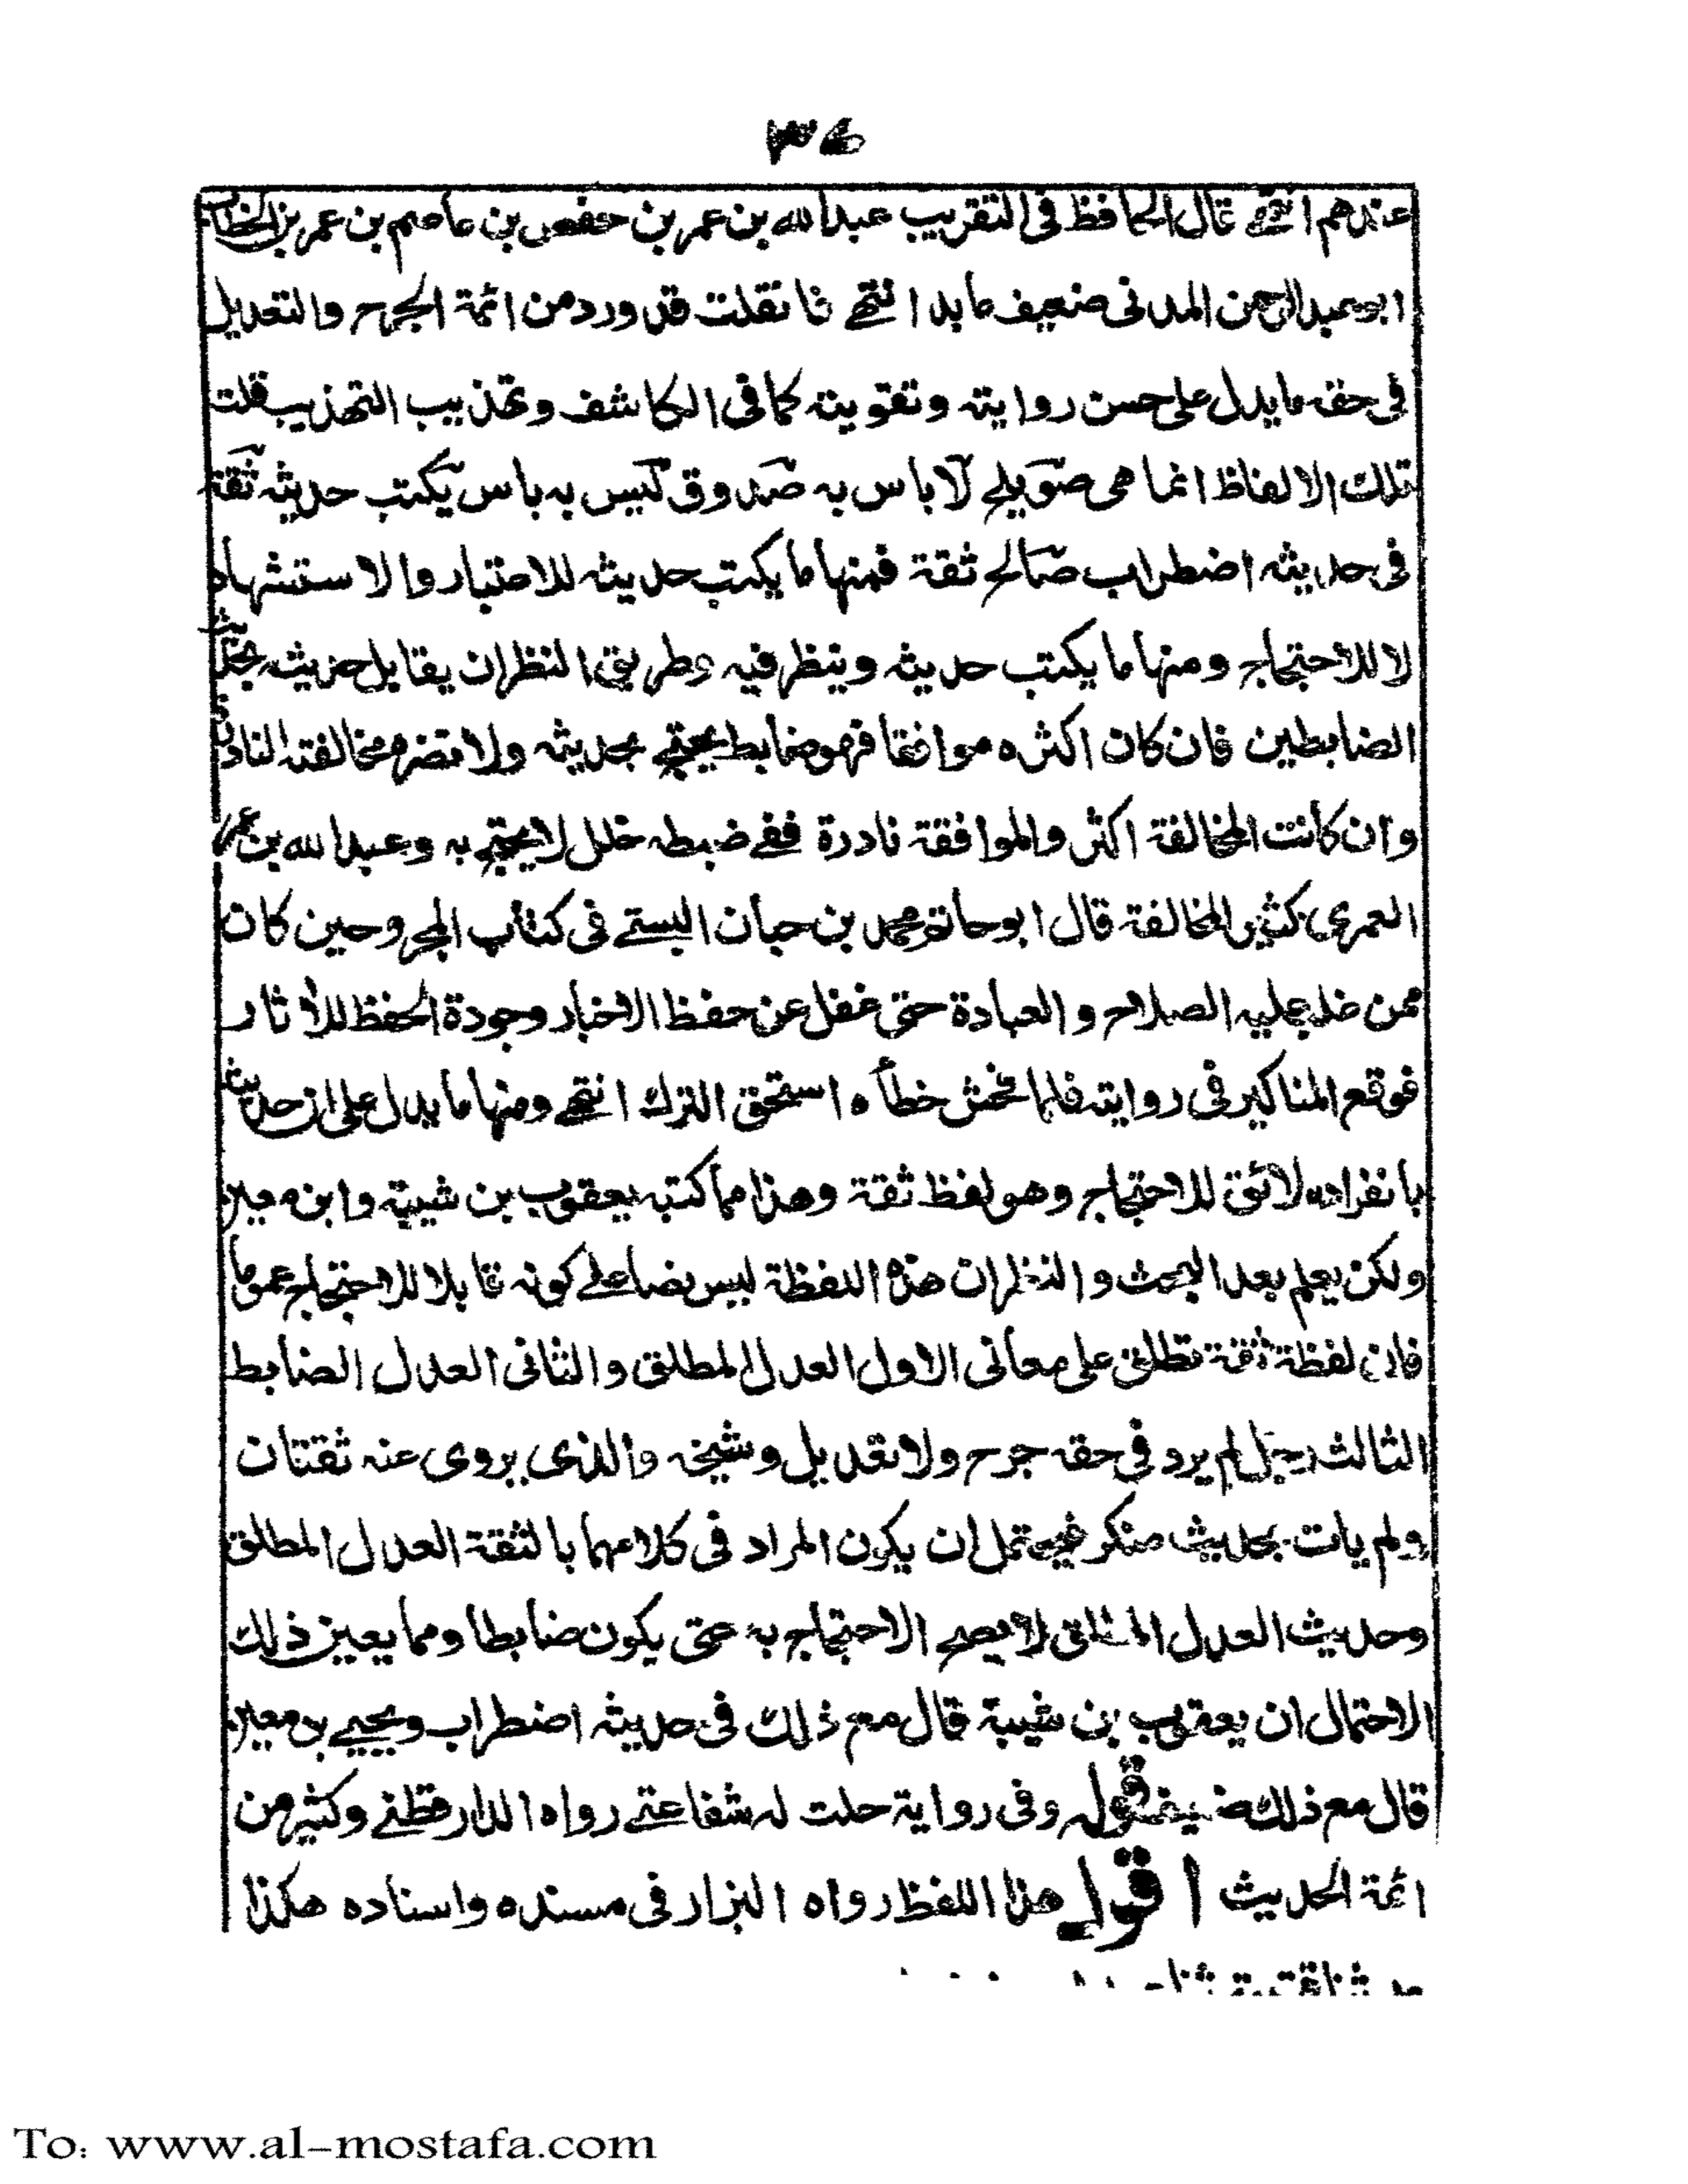 ٣٤
عندهم انتهى قال الحافظ فى التقريب عبد الله بن عمر بن حفص بن عاصم بن عمر بن الخطاب
ابو عبد الرحمن المدنى ضعيف عابد انتهے فان قلت قد ورد من ائمة الجرح والتعديل
فى حقه ما يدل على حسن روايته وتقويته كما فى الكاشف وتهذيب التهذيب قلت
تلك الالفاظ انما هى صويلح لا باس به صدوق ليس به باس يكتب حديثه ثقة
فى حديثه اضطراب صالح ثقة فمنها ما يكتب حديثه للاختبار والاستشهاد
لا للاحتجاج ومنها ما يكتب حديثه وينظر فيه وطريق النظر ان يقابل حديثه بحديث
الضابطين فان كان اكثره موافقا فهو ضابط يحتج بحديثه ولا تضره مخالفته النادرة
وان كانت المخالفة اكثر والموافقة نادرة ففے ضبطه خلل لا يحتج به وعبد الله بن عمر
العمرى كثير المخالفة قال ابو حاتم محمد بن حبان البستے فى كتاب المجروحين كان
ممن غلب عليه الصلاح والعبادة حتى غفل عن حفظ الاخبار وجودة الحفظ للاثار
فوقع المناكير فى روايته فلما فحش خطأه استحق الترك انتهے ومنها ما يدل على ان حديثه
بانفراده لائق للاحتجاج وهو لفظ ثقة وهذا مما كتبه يعقوب بن شيبة وابن معين
ولكن يعلم بعد البحث والنظر ان هذه اللفظة ليس نصا علے كونه قابلا للاحتجاج عموما
فان لفظة ثقة تطلق على معانى الاول العدل المطلق والثانى العدل الضابط
الثالث رجل لم يرد فى حقه جرح ولا تعديل وشيخه والذى يروى عنه ثقتان
ولم يات بحديث منكر فيحتمل ان يكون المراد فى كلامهما بالثقة العدل المطلق
وحديث العدل المطلق لا يصح الاحتجاج به حتى يكون ضابطا ومما يعين ذلك
الاحتمال ان يعقوب بن شيبة قال مع ذلك فى حديثه اضطراب ويحيے بن معين
قال مع ذلك ضعيف قوله وفى رواية حلت له شفاعتے رواه الدارقطنے وكثير من
ائمة الحديث اقول هذا اللفظ رواه البزار فى مسنده واسناده هكذا
حدثنا قتيبة ثنا
To: www.al-mostafa.com